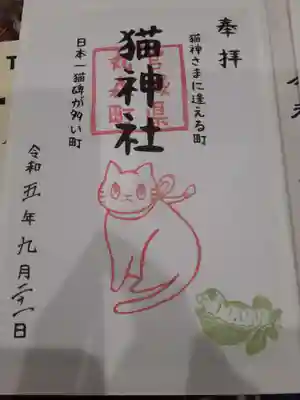 奉拝
猫神さまに逢える町
猫神社
日本一猫碑が多い町
令和五年九月二十一日
宮城県